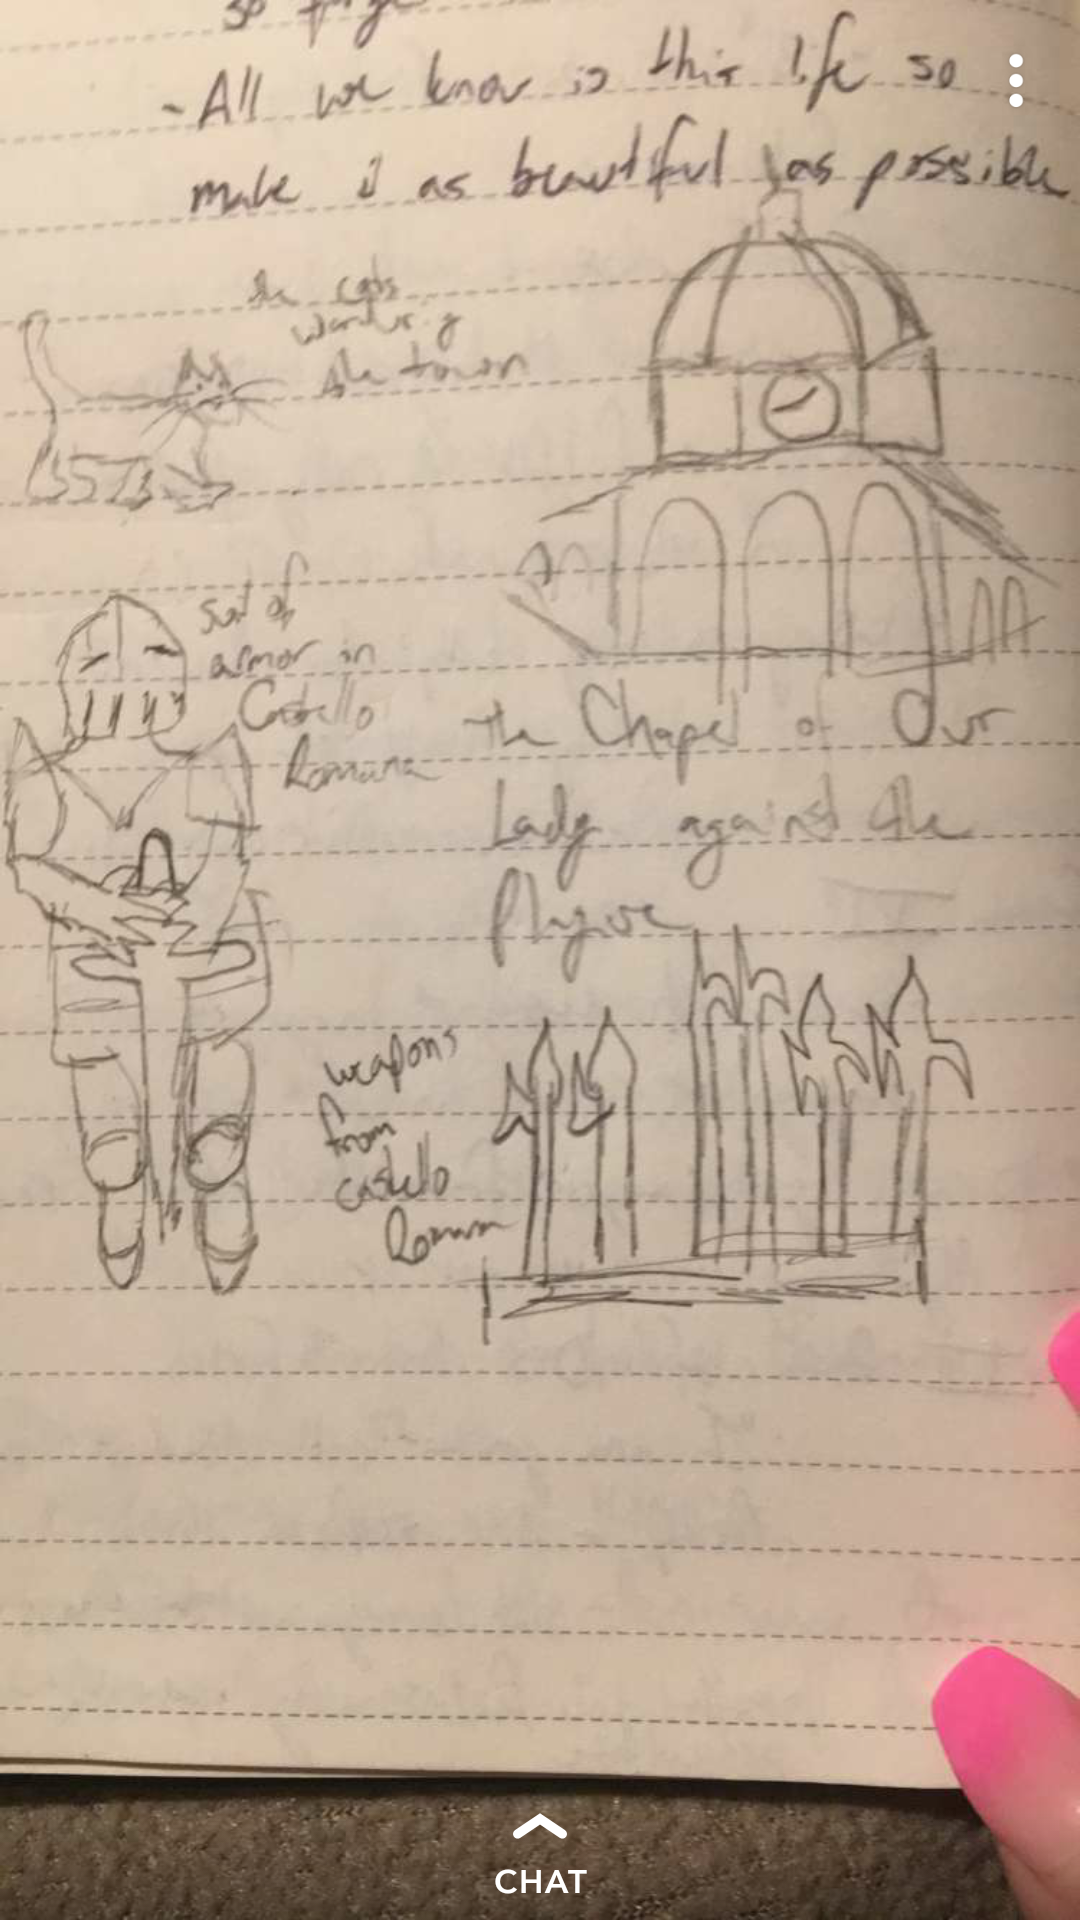 so
- All we know is this life so
make it as beautiful as possible
the cats
wandering
the town
suit of
armor in
Castello
Romana
The Chapel of Our
Lady against the
Plague
weapons
from
castello
Romana
CHAT